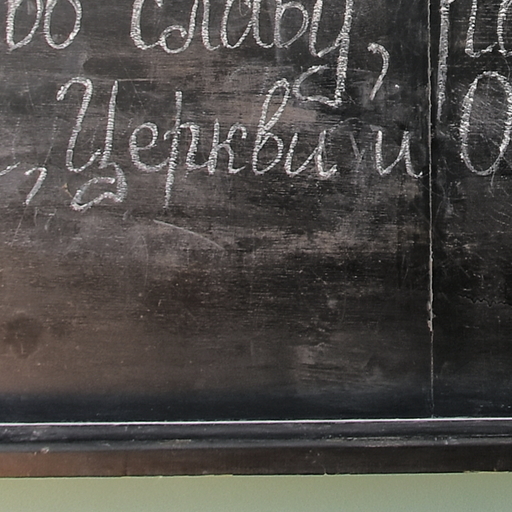 во славу,
, Церкви и